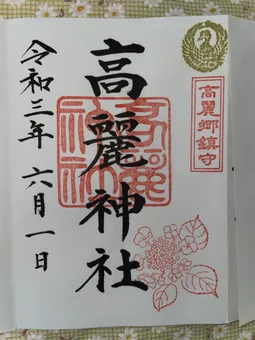 高麗郷鎮守
高麗神社
令和三年 六月一日
高麗神社